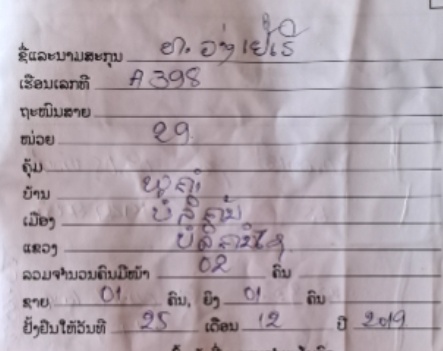 ຊື່ແລະນາມສະກຸນ ທ. ວ່າງ ເຢ່ເຣີ
ເຮືອນເລກທີ A 398
ຖະໜົນສາຍ
ໜ່ວຍ 29
ຄຸ້ມ
ບ້ານ
ເມືອງ ບໍລິຄັນ
ແຂວງ ບໍລິຄໍາໄຊ
ລວມຈຳນວນຄົນມີໜ້າ 02 ຄົນ
ຊາຍ 01 ຄົນ, ຍິງ 01 ຄົນ
ຢັ້ງຢືນໃຫ້ວັນທີ 25 ເດືອນ 12 ປີ 2019